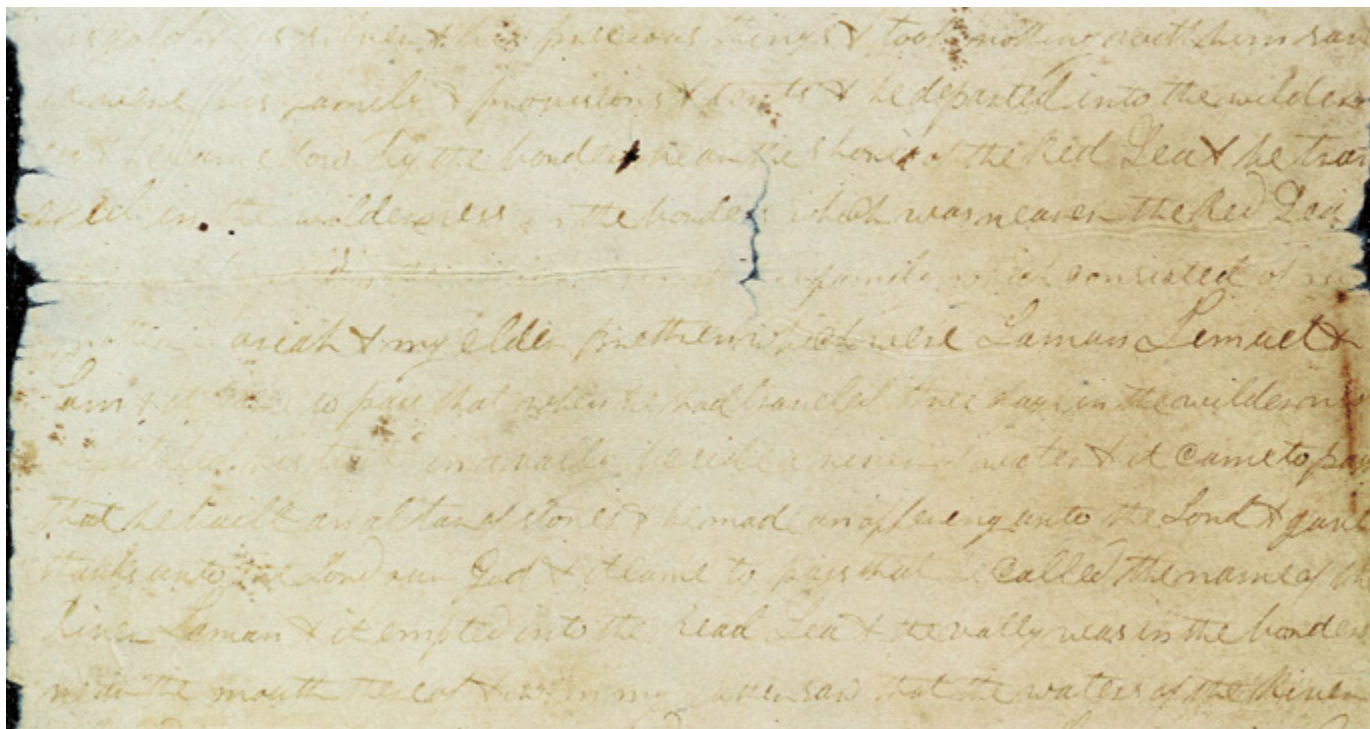 his gold & his silver & his precious things & took nothing with him save
it were his family & provisions & tents & he departed into the wilderne
ss & he came down by the borders near the shore of the Red Sea & he trav
eled in the wilderness in the borders which was nearer the Red Sea
family which consisted of my
mother Sariah & my elder brethren which were Laman Lemuel &
Sam & it came to pass that when he had traveled three days in the wilderness
he pitched his tent in a vally beside a river of water & it came to pass
that he built an altar of stones & he made an offering unto the Lord & gave
thanks unto the Lord our God & it came to pass that he called the name of the
River Laman & it emptied into the Read Sea & the vally was in the borders
near the mouth thereof & when my father saw that the waters of the River